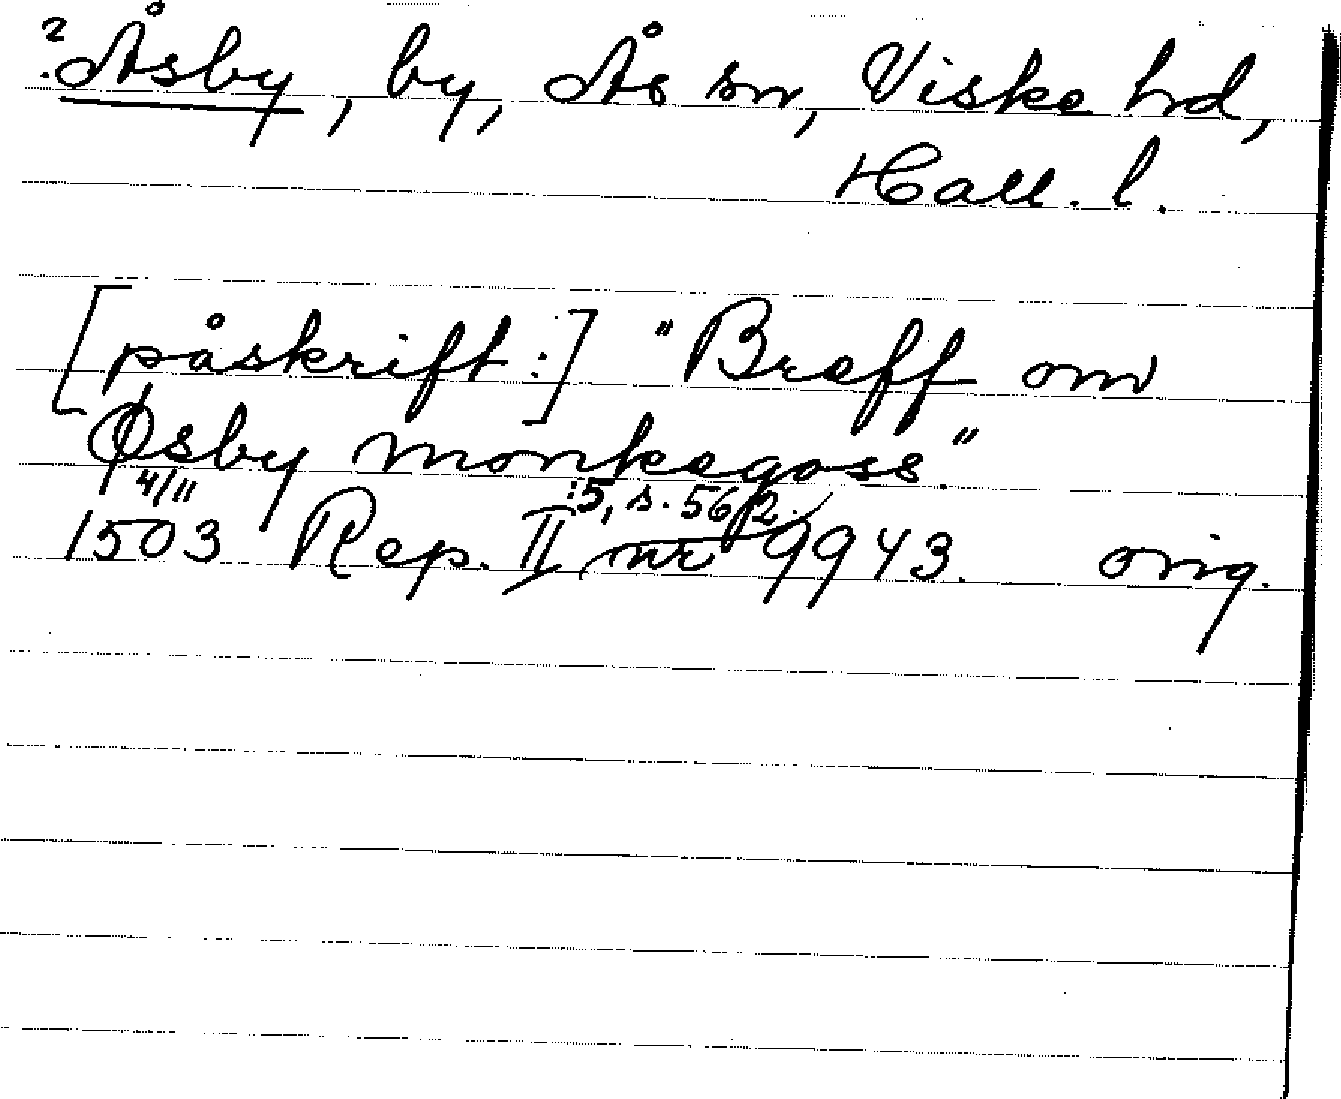 ? Åsby, by, Ås sn, Viske hd,
Hall. l.
[påskrift:] "Breff om
Øsby monkegoss."
4/11
1503 Rep. II:5, s. 562. nr 9943. orig.